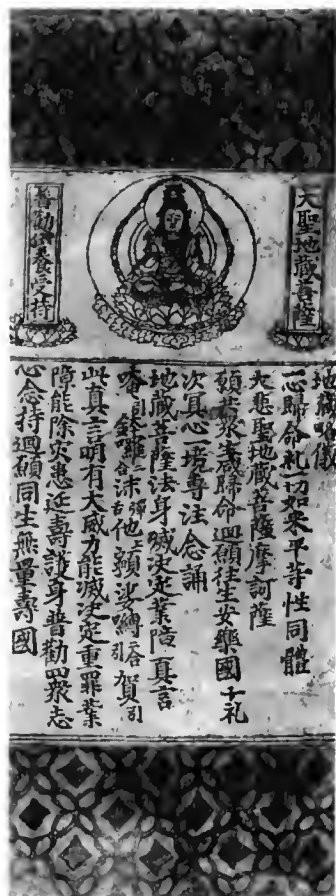 大聖地藏菩薩
普勸供養受持
地藏略儀
一心歸命礼一切如来平等性同體
大悲聖地藏菩薩摩訶薩
願共衆咸歸命迴願往生安樂國 一礼
次冥心一境專注念誦
地藏菩薩法身滅決定業障真言
唵引鉢囉二合沫他額娑嚩二合賀引
此真言明有大威力能滅決定重罪業
障能除灾患延壽護身普勸四衆志
心念持迴願同生無量壽國